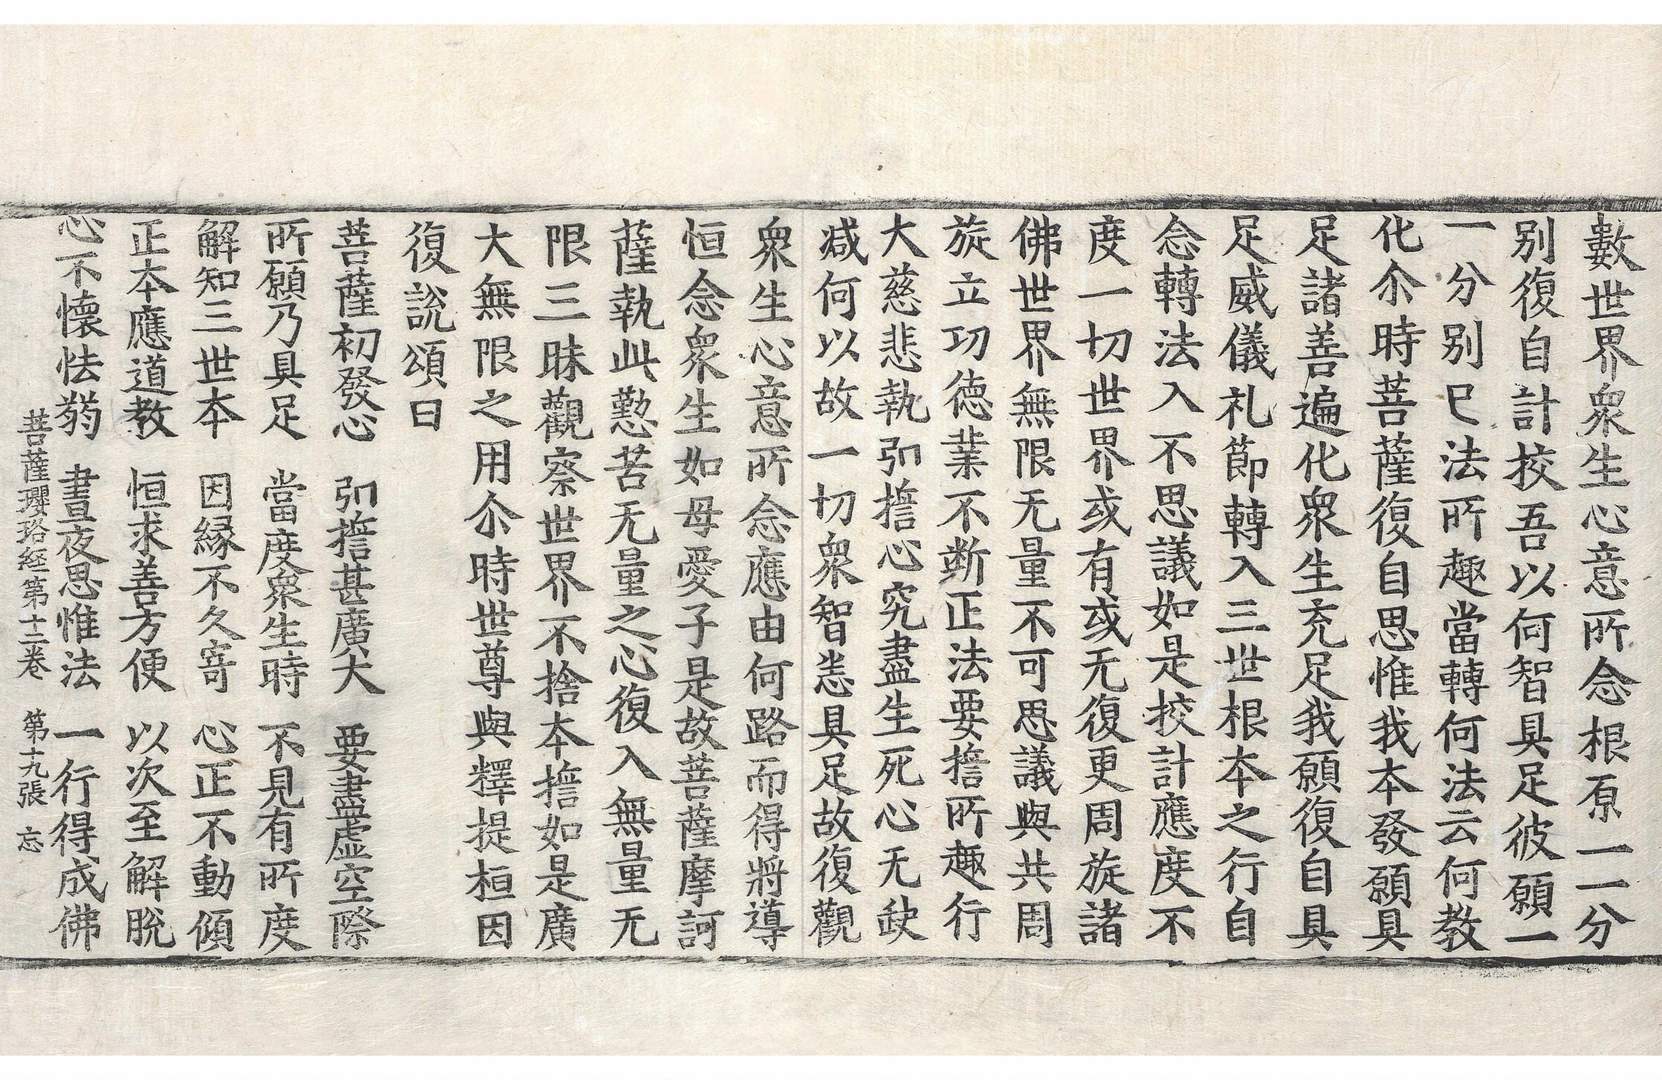 數世界衆生心意所念根原一一分
別復自計挍吾以何智具足彼願一
一分別已法所趣當轉何法云何教
化尒時菩薩復自思惟我本發願具
足諸善遍化衆生充足我願復自具
足威儀礼節轉入三世根本之行自
念轉法入不思議如是挍計應度不
度一切世界或有或无復更周旋諸
佛世界無限无量不可思議與共周
旋立功德業不断正法要擔所趣行
大慈悲執弘擔心究盡生死心无缺
减何以故一切衆智恚具足故復觀
衆生心意所念應由何路而得將導
恒念衆生如母愛子是故菩薩摩訶
薩執此懃苦无量之心復入無量无
限三昧觀察世界不捨本擔如是廣
大無限之用尒時世尊與釋提桓因
復說頌曰
菩薩初發心　弘擔甚廣大　要盡虛空際
所願乃具足　當度衆生時　不見有所度
解知三世本　因縁不久寄　心正不動傾
正本應道教　恒求善方便　以次至解脫
心不懷怯弱　晝夜思惟法　一行得成佛
菩薩瓔珞經第十二卷　第十九張　忘